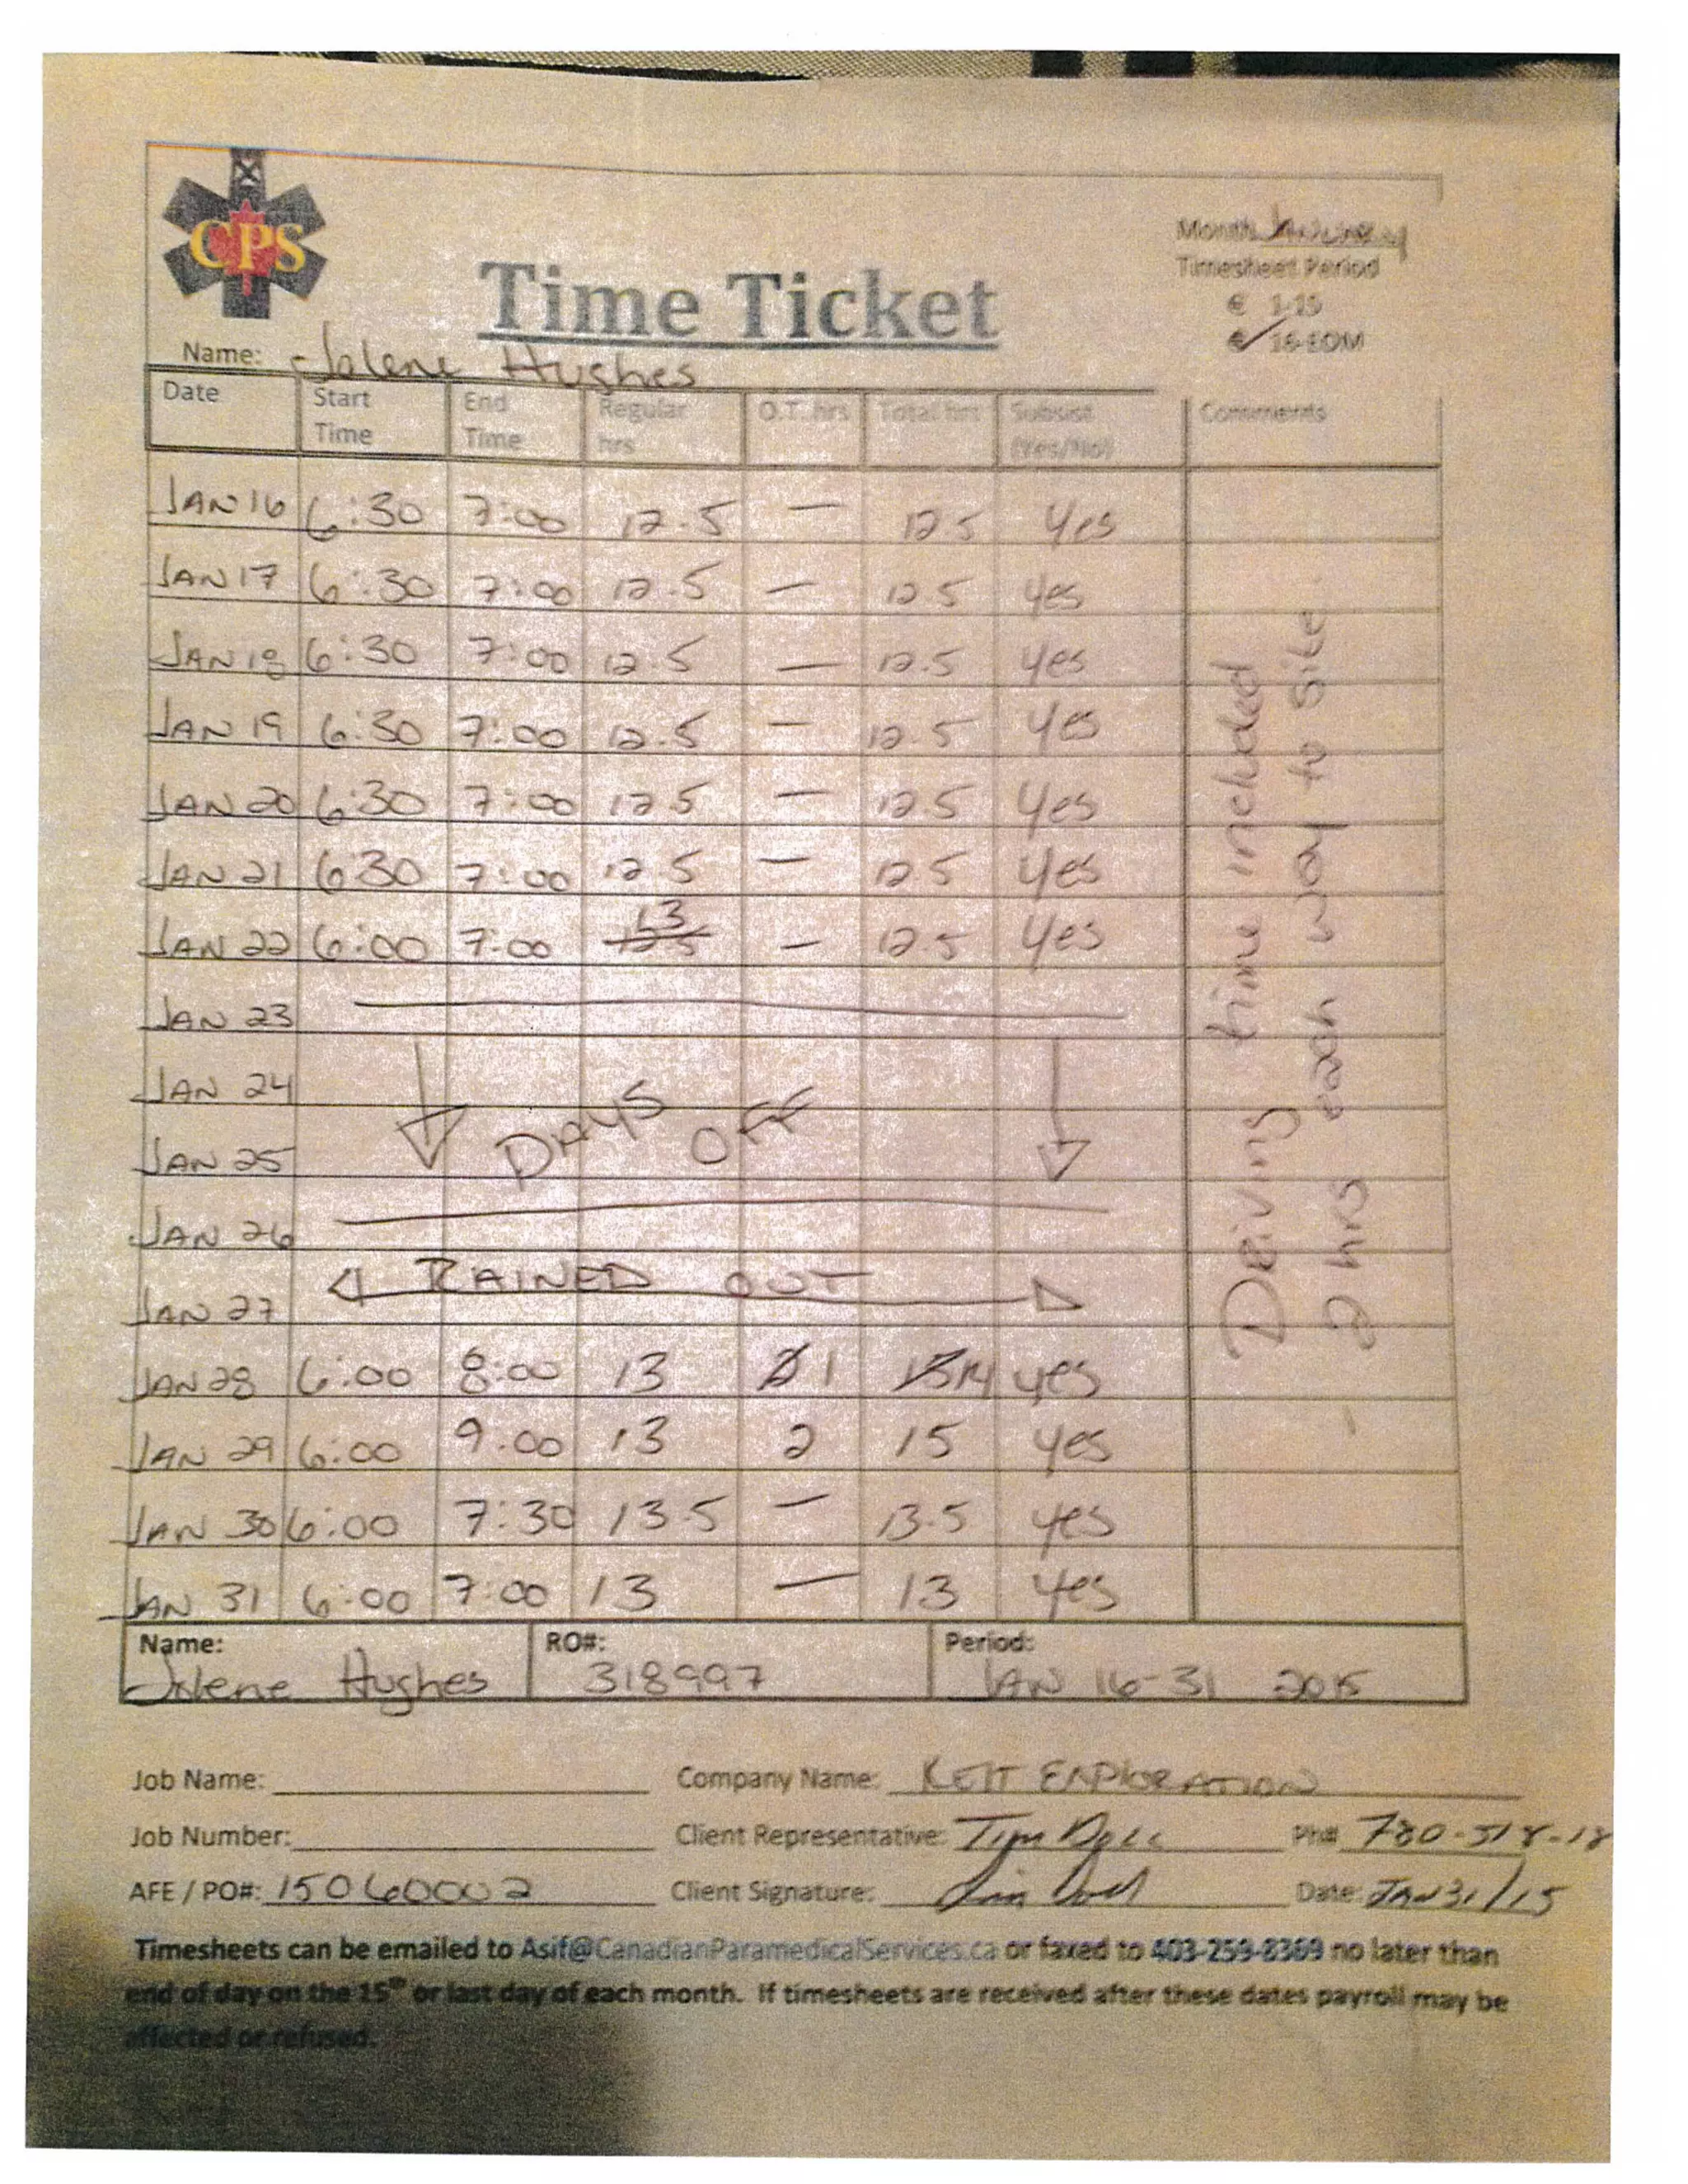 CPS
Month January
Timesheet Period
€ 1-15
€ 16-EOM
Time Ticket
Name: Jolene Hughes
Date Start Time End Time Regular hrs O.T. hrs Total hrs Subsist (Yes/No) Comments
JAN 16 6:30 7:00 12.5 — 12.5 Yes
JAN 17 6:30 7:00 12.5 — 12.5 Yes
JAN 18 6:30 7:00 12.5 — 12.5 Yes
JAN 19 6:30 7:00 12.5 — 12.5 Yes
JAN 20 6:30 7:00 12.5 — 12.5 Yes
JAN 21 630 7:00 12.5 — 12.5 Yes
JAN 22 6:00 7:00 12.5 13 — 12.5 Yes
JAN 23
JAN 24
DAYS OFF
JAN 25
JAN 26
JAN 27 RAINED OUT
JAN 28 6:00 8:00 13 1 14 yes
JAN 29 6:00 9:00 13 2 15 yes
JAN 30 6:00 7:30 13.5 — 13.5 yes
JAN 31 6:00 7:00 13 — 13 yes
Driving time included
2 hrs each way to site.
Name: RO#: Period:
Jolene Hughes 318997 JAN 16-31 2015
Job Name: Company Name:
Job Number: Client Representative: Tim Ph# 780-518-18
AFE / PO#: 15060002 Client Signature: Date: JAN 31/15
Timesheets can be emailed to Asif@CanadianParamedicalServices.ca or faxed to 403-259-8369 no later than
end of day on the 15th or last day of each month. If timesheets are received after these dates payroll may be
affected or refused.